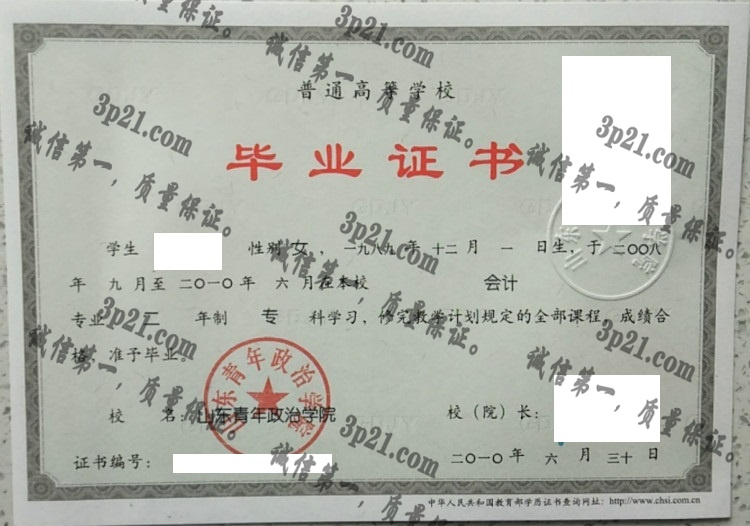 普通高等学校
毕业证书
学生 性别 女，一九八九年 十二月 一 日生，于二〇〇八
年 九月至 二〇一〇年 六月在本校 会计
专业 二 年制 专 科学习，修完教学计划规定的全部课程，成绩合
格，准予毕业。
校 名：山东青年政治学院 校（院）长：
证书编号： 二〇一〇年 六 月 三十日
中华人民共和国教育部学历证书查询网址：http://www.chsi.com.cn
山东青年政治学院
3p21.com
诚信第一，质量保证。
3p21.com
诚信第一，质量保证。
3p21.com
诚信第一，质量保证。
3p21.com
诚信第一，质量保证。
3p21.com
诚信第一，质量保证。
3p21.com
诚信第一，质量保证。
3p21.com
诚信第一，质量保证。
3p21.com
诚信第一，质量保证。